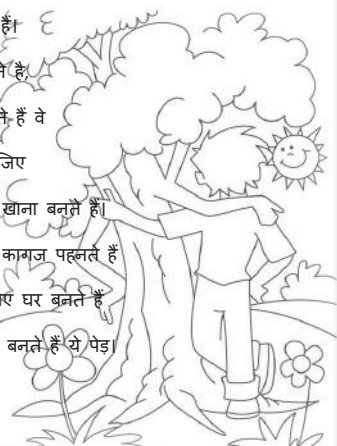 हैं।
है,
हैं वे
खाना बनते हैं।
कागज पहनते हैं
घर बनते हैं
बनते हैं ये पेड़।